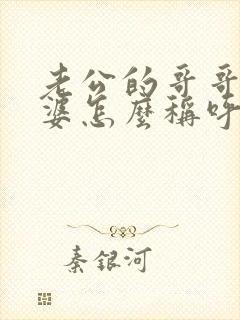 老公的哥哥
婆怎麼稱呼
秦銀河